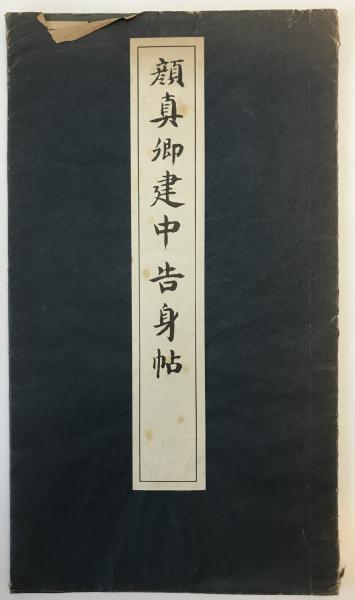 顔真卿建中告身帖